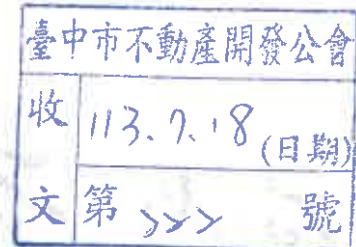 臺中市不動產開發公會
收 113.7.18 (日期)
文 第 222 號